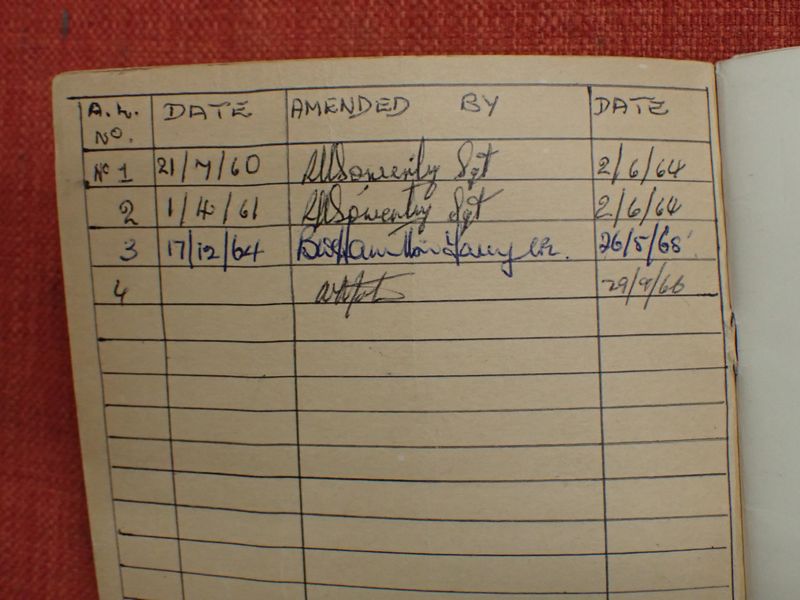 A.L. NO. DATE AMENDED BY DATE
No 1 21/7/60 Sgt 2/6/64
2 1/4/61 Sgt 2/6/64
3 17/12/64 26/5/65
4 29/9/66